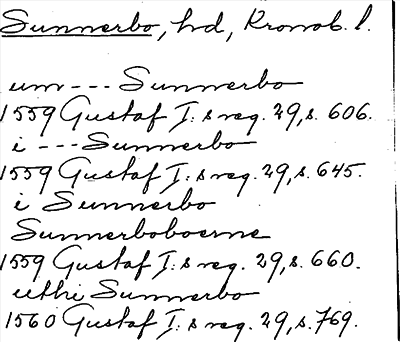 Sunnerbo, hd, Kronob. l.
um --- Sunnerbo
1559 Gustaf I:s reg. 29, s. 606.
i --- Sunnerbo
1559 Gustaf I:s reg. 29, s. 645.
i Sunnerbo
Sunnerboboerne
1559 Gustaf I:s reg. 29, s. 660.
uthi Sunnerbo
1560 Gustaf I:s reg. 29, s. 769.